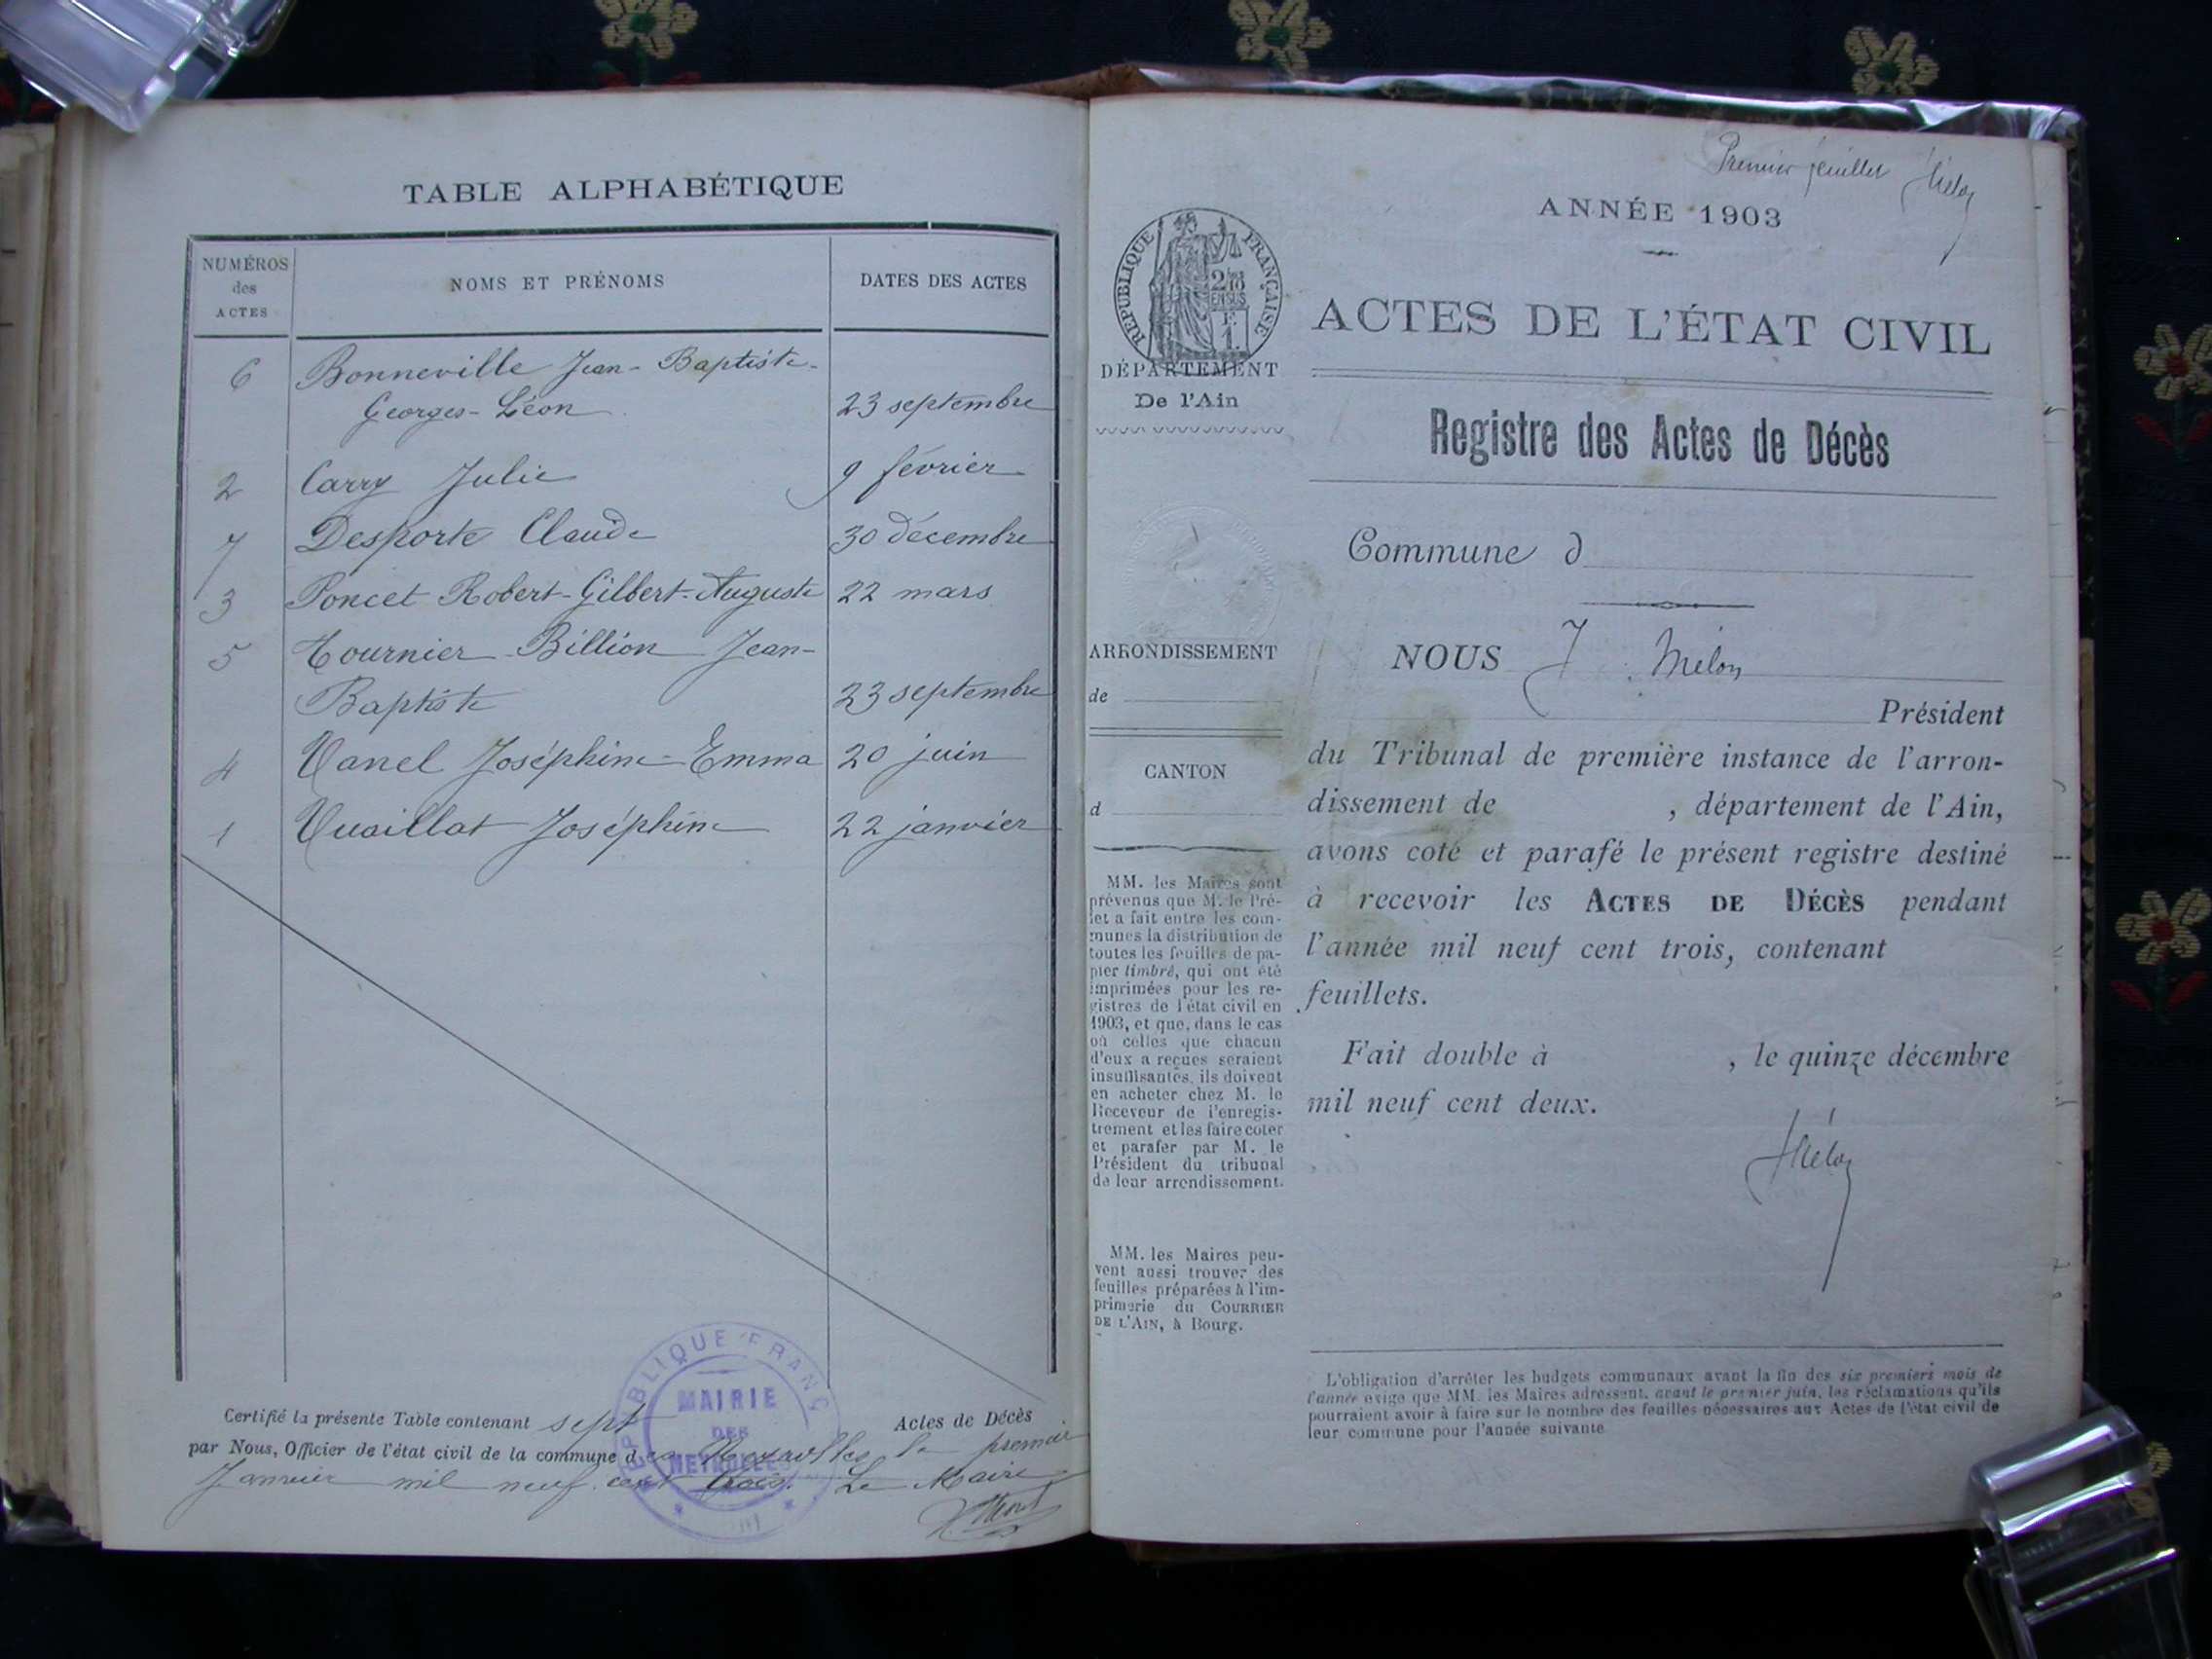 TABLE ALPHABÉTIQUE
NUMÉROS
des
ACTES
NOMS ET PRÉNOMS
DATES DES ACTES
6 Bonneville Jean-Baptiste-
Georges-Léon 23 septembre
2 Carry Julie 9 février
7 Desporte Claude 30 décembre
3 Poncet Robert-Gilbert-Auguste 22 mars
5 Tournier-Billion Jean-
Baptiste 23 septembre
4 Vanel Joséphine-Emma 20 juin
1 Vuaillat Joséphine 22 janvier
Certifié la présente Table contenant sept Actes de Décès
par Nous, Officier de l'état civil de la commune des Neyrolles le premier
Janvier mil neuf cent trois. Le Maire
RÉPUBLIQUE FRANÇ
MAIRIE
DES
NEYROLLES
Premier feuillet
ANNÉE 1903
RÉPUBLIQUE FRANÇAISE
ACTES DE L'ÉTAT CIVIL
Registre des Actes de Décès
Commune d
NOUS J. Mélon
Président
du Tribunal de première instance de l'arron-
dissement de , département de l'Ain,
avons coté et parafé le présent registre destiné
à recevoir les ACTES DE DÉCÈS pendant
l'année mil neuf cent trois, contenant
feuillets.
Fait double à , le quinze décembre
mil neuf cent deux.
DÉPARTEMENT
De l'Ain
ARRONDISSEMENT
de
CANTON
d
MM. les Maires sont
prévenus que M. le Pré-
fet a fait entre les com-
munes la distribution de
toutes les feuilles de pa-
pier timbré, qui ont été
imprimées pour les re-
gistres de l'état civil en
1903, et que, dans le cas
où celles que chacun
d'eux a reçues seraient
insuffisantes, ils doivent
en acheter chez M. le
Receveur de l'enregis-
trement et les faire coter
et parafer par M. le
Président du tribunal
de leur arrondissement.
MM. les Maires peu-
vent aussi trouver des
feuilles préparées à l'im-
primerie du COURRIER
DE L'AIN, à Bourg.
L'obligation d'arrêter les budgets communaux avant la fin des six premiers mois de
l'année exige que MM. les Maires adressent, avant le premier juin, les réclamations qu'ils
pourraient avoir à faire sur le nombre des feuilles nécessaires aux Actes de l'état civil de
leur commune pour l'année suivante